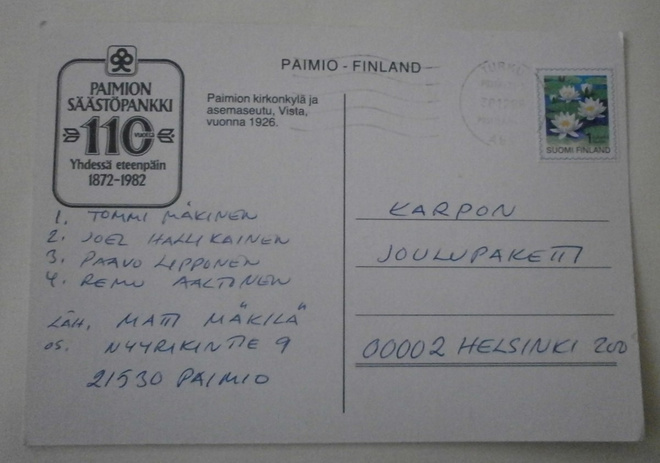 PAIMION
SÄÄSTÖPANKKI
110
VUOTTA
Yhdessä eteenpäin
1872-1982
PAIMIO - FINLAND
Paimion kirkonkylä ja
asemaseutu, Vista,
vuonna 1926.
TURKU
1
SUOMI FINLAND
1. TOMMI MÄKINEN
2. JOEL HALLIKAINEN
3. PAAVO LIPPONEN
4. REMU AALTONEN
LÄH. MATTI MÄKILÄ
OS. NYYRIKINTIE 9
21530 PAIMIO
KARPON
JOULUPAKETTI
00002 HELSINKI 200